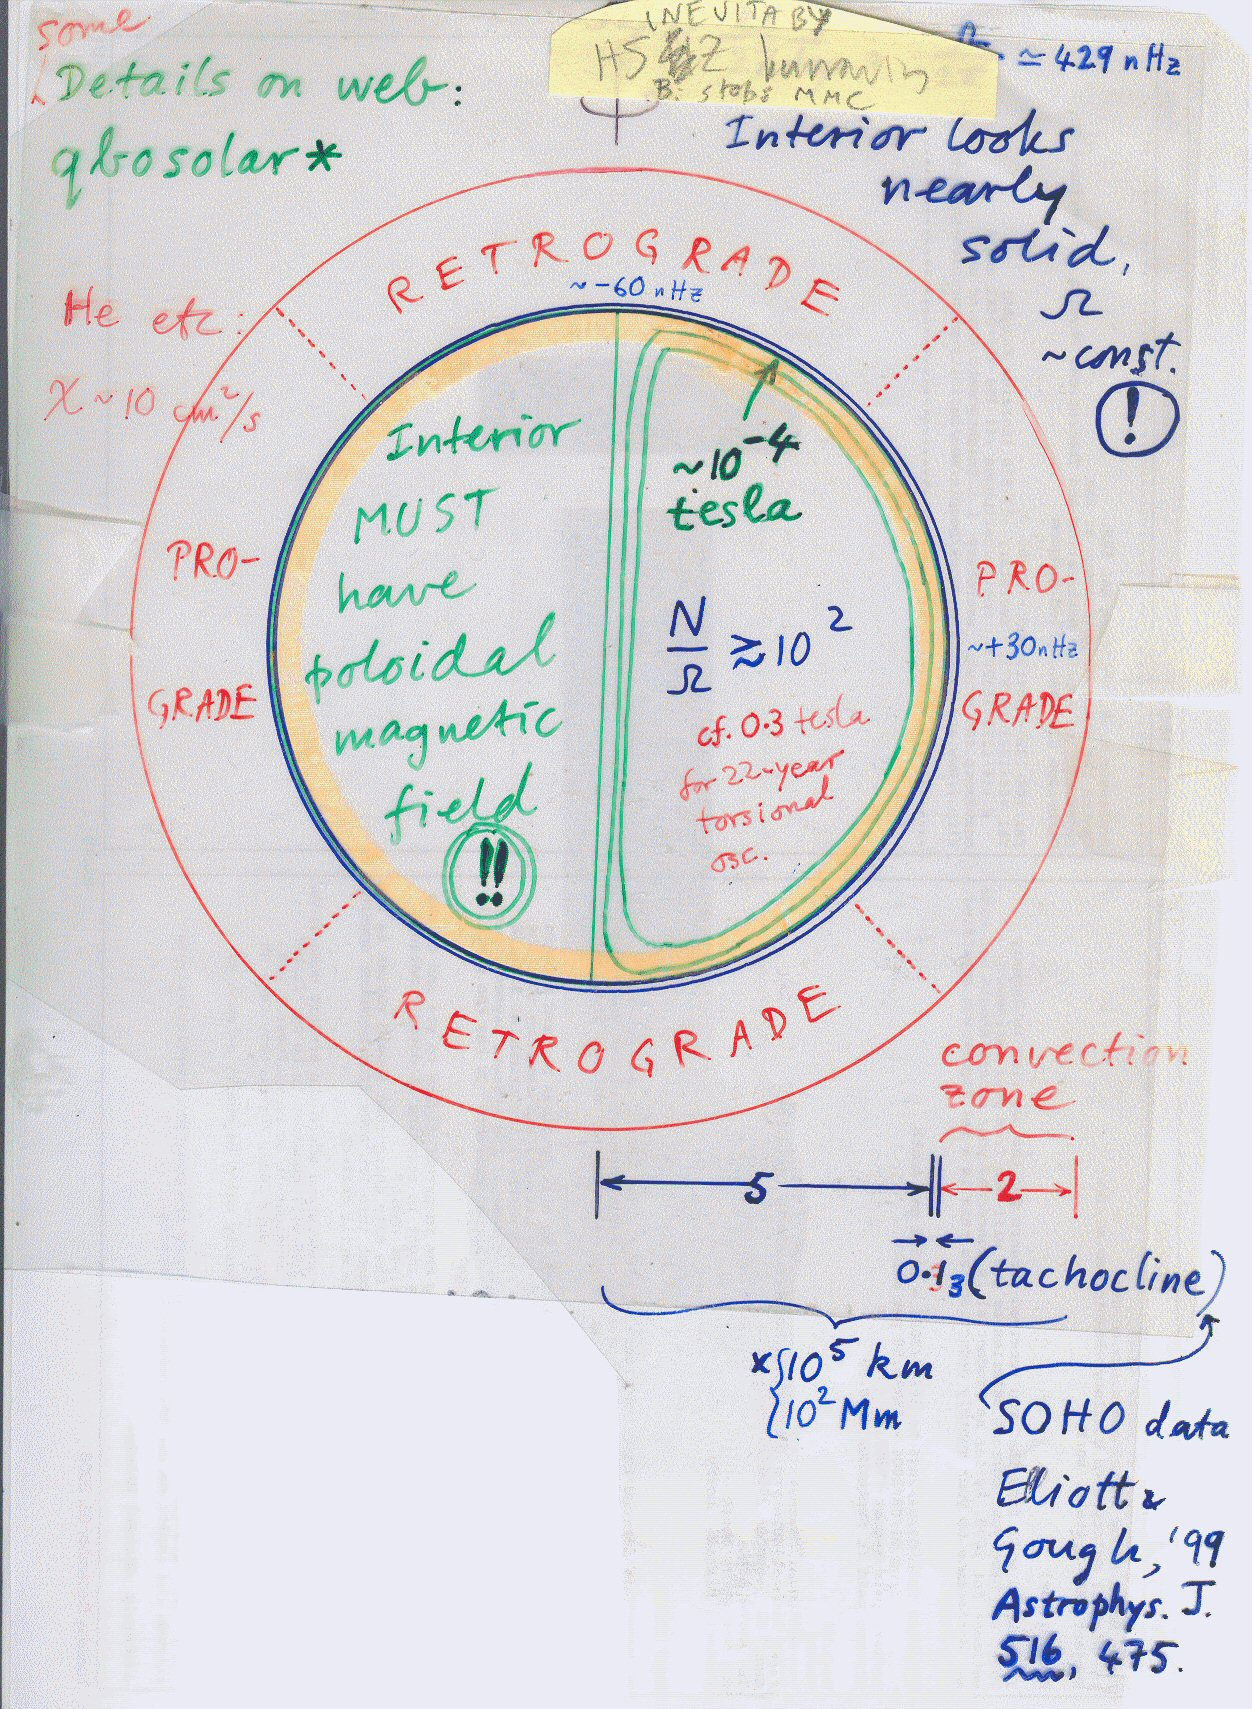 some
Details on web:
qbosolar*
INEVITABY
B. stops MMC
≃ 429 nHz
Interior looks
nearly
solid,
Ω
~const.
!
He etc:
χ ~ 10 cm²/s
RETROGRADE
~ -60 nHz
PRO-
GRADE
Interior
MUST
have
poloidal
magnetic
field
!!
~10⁻⁴
tesla
N/Ω ≳ 10²
cf. 0.3 tesla
for 22-year
torsional
osc.
PRO-
~+30nHz
GRADE
RETROGRADE
convection
zone
5
2
0.13 (tachocline)
×{10⁵ km
{10² Mm
SOHO data
Eliott &
Gough, '99
Astrophys. J.
516, 475.